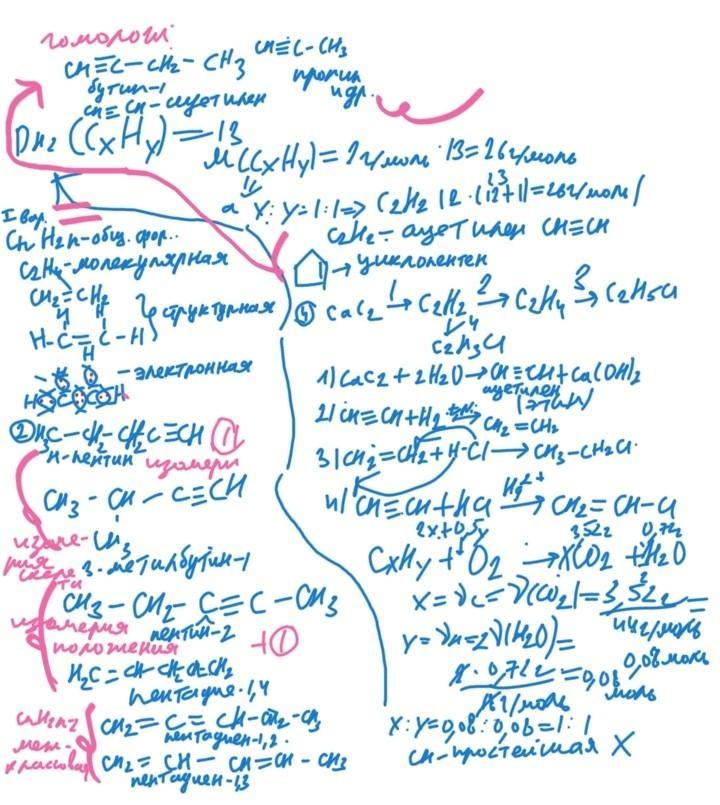 гомологі:
CH≡C-CH₂-CH₃ CH≡C-CH₃
бутин-1 пропин
CH≡CH-ацетилен и др.
D H₂ (CxHy)=13
M(CxHy)=2г/моль·13=26г/моль
x:y=1:1=>C₂H₂ (2·(12+1)=26г/моль)
C₂H₂-ацетилен CH≡CH
I вар.
CnH₂n-общ. фор..
C₂H₄-молекулярная
CH₂=CH₂
структурная
H-C=C-H
H H
- электронная
→циклопентен
④ CaC₂ 1→ C₂H₂ 2→ C₂H₄ 3→ C₂H₅Cl
↓4
C₂H₃Cl
1) CaC₂+2H₂O→CH≡CH+Ca(OH)₂
ацетилен
(этин)
2) CH≡CH+H₂ → CH₂=CH₂
3) CH₂=CH₂+H-Cl→CH₃-CH₂Cl
4) CH≡CH+HCl Hg²⁺→ CH₂=CH-Cl
② H₃C-CH₂-CH₂C≡CH ①
н-пентин изомери
CH₃-CH-C≡CH
CH₃
изоме-
рия
скеле
та
3-метилбутин-1
CH₃-CH₂-C≡C-CH₃
пентин-2
изомерия
положения
+①
H₂C=CH-CH₂CH=CH₂
пентадиен-1,4
CnH₂n-2
меж-
классовая
CH₂=C=CH-CH₂-CH₃
пентадиен-1,2.
CH₂=CH-CH=CH-CH₃
пентадиен-1,3
2x+0,5y 3,52г 0,72г
CxHy+O₂→XCO₂+H₂O
X=νc=ν(CO₂)=3,52г/44г/моль=
0,08моль
Y=νн=2ν(H₂O)=
2·0,72г/18г/моль=0,08
моль
X:Y=0,08:0,08=1:1
CH-простейшая X